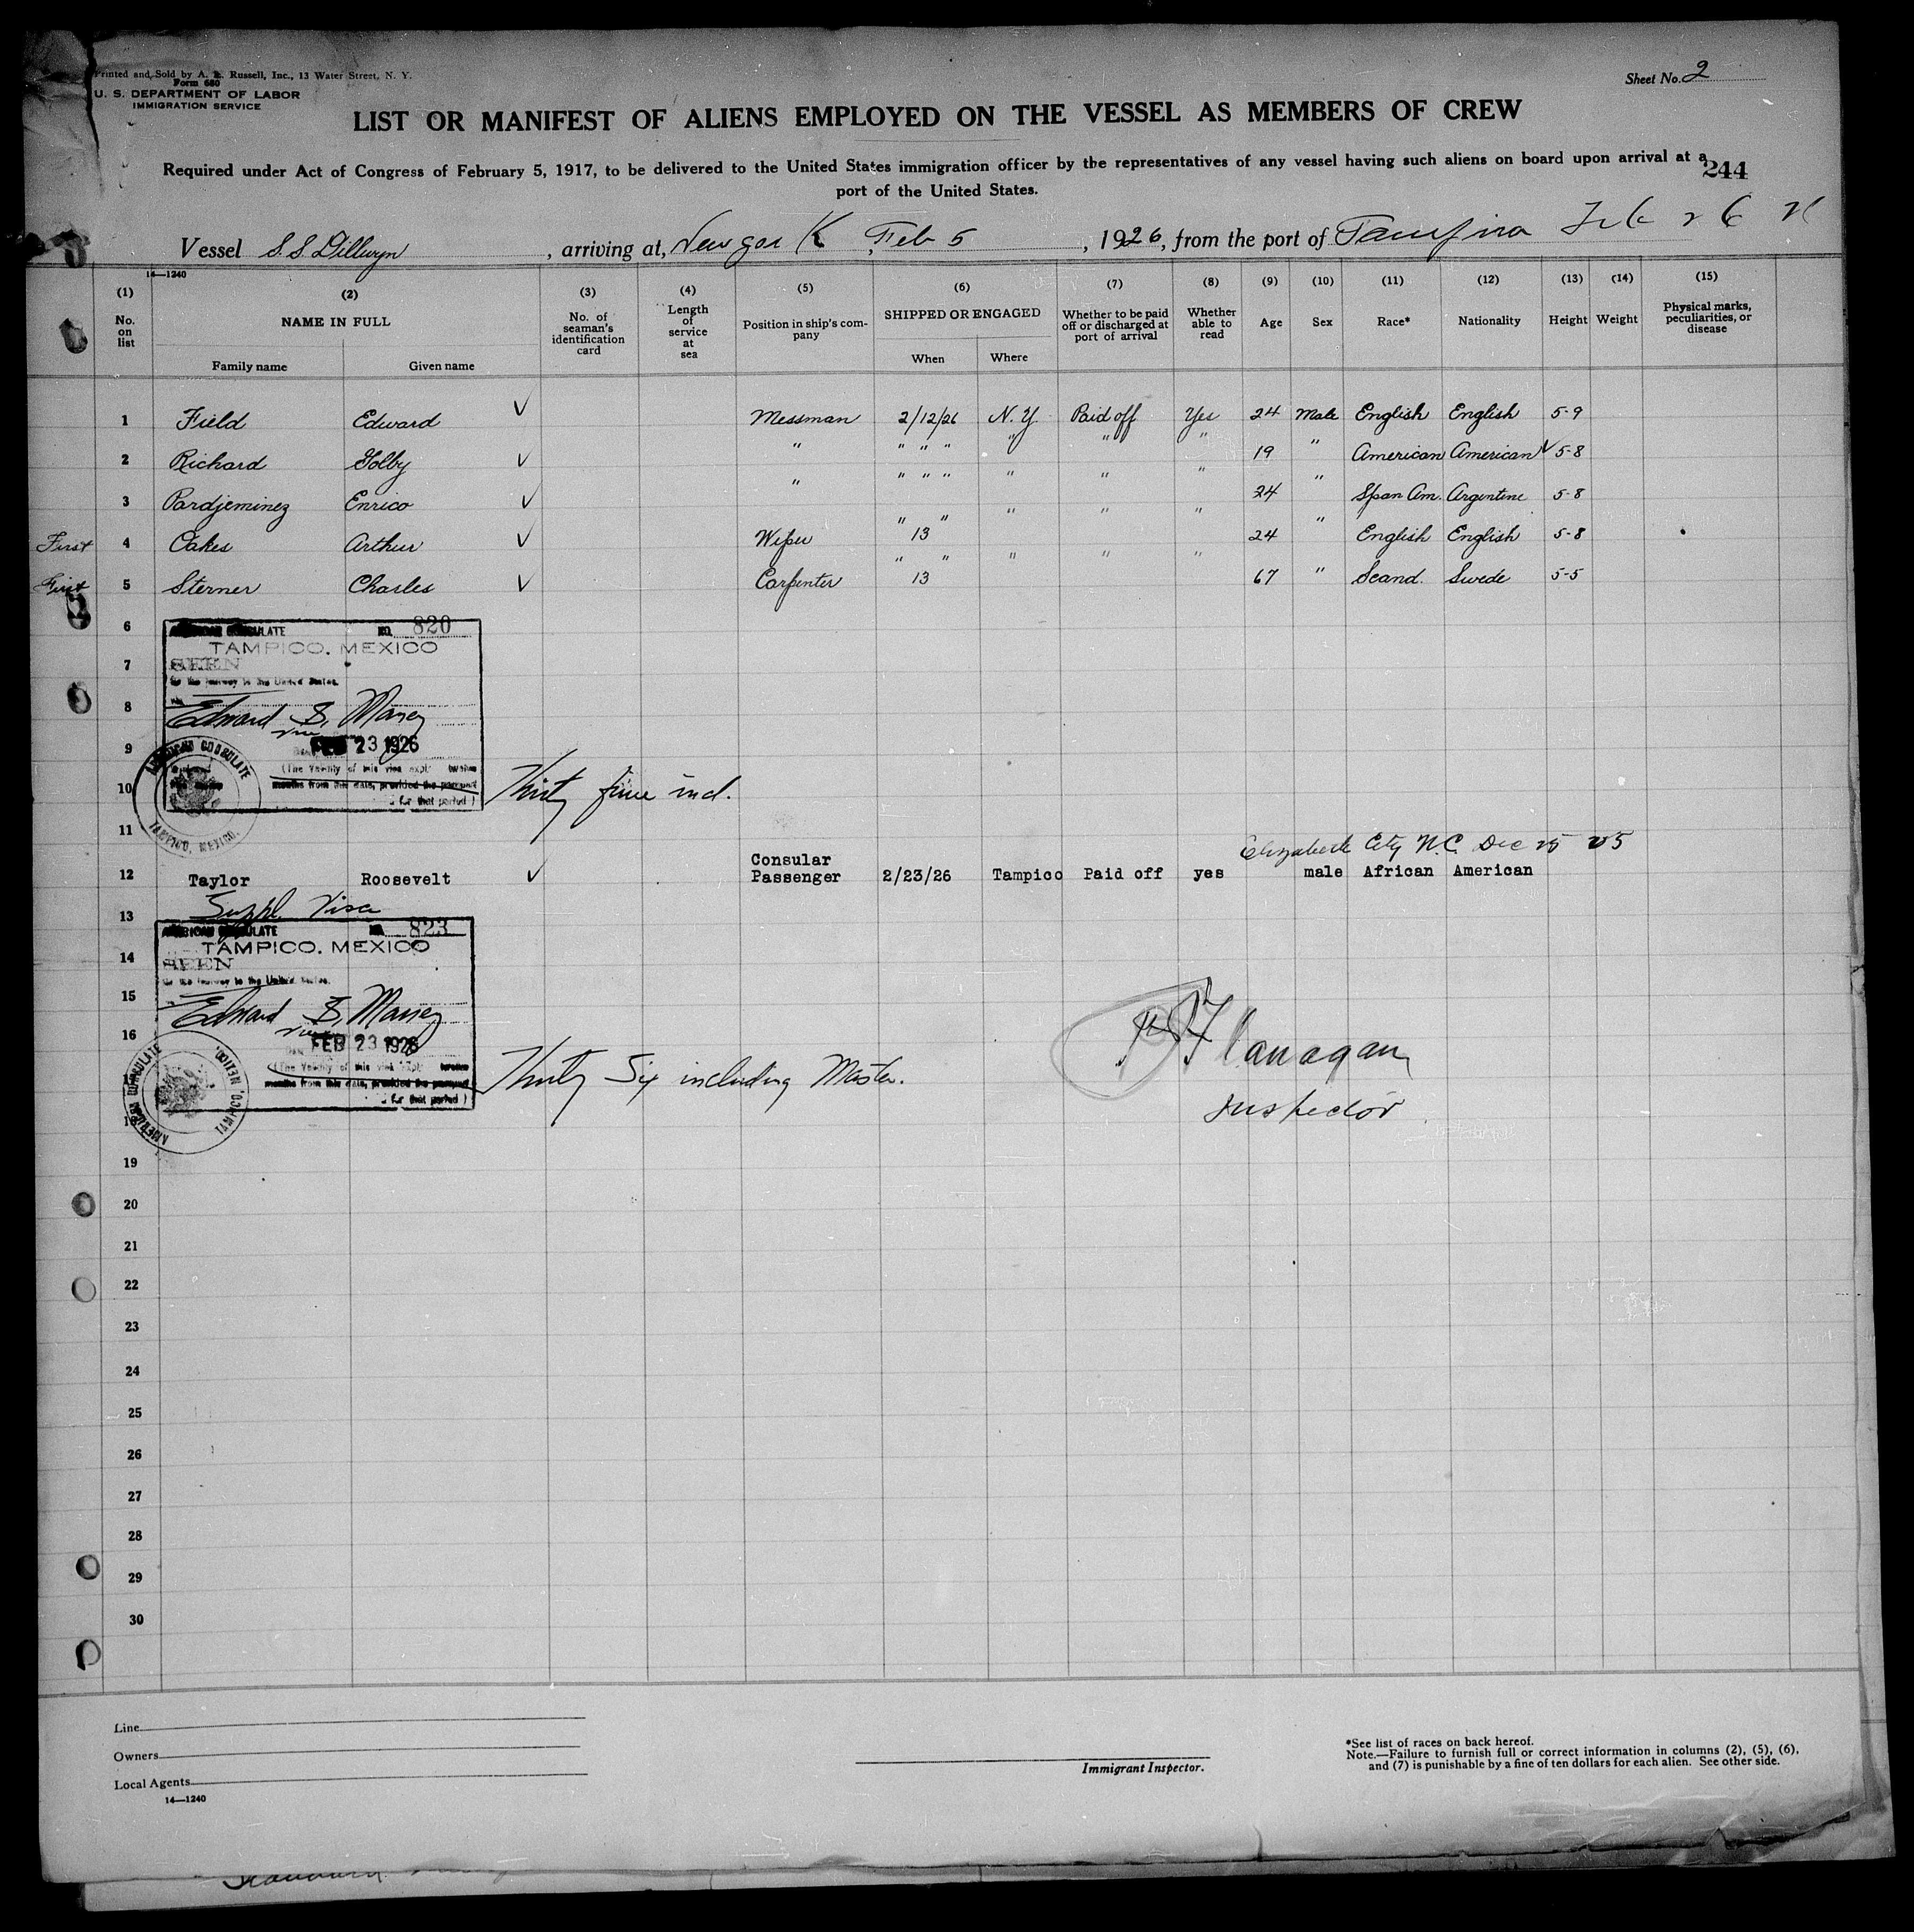 Printed and Sold by A. E. Russell, Inc., 13 Water Street, N. Y.
Form 680
U. S. DEPARTMENT OF LABOR
IMMIGRATION SERVICE
Sheet No. 2
LIST OR MANIFEST OF ALIENS EMPLOYED ON THE VESSEL AS MEMBERS OF CREW
Required under Act of Congress of February 5, 1917, to be delivered to the United States immigration officer by the representatives of any vessel having such aliens on board upon arrival at a
port of the United States.
244
Vessel S.S. Dillwyn, arriving at, New York, Feb 5, 1926, from the port of Feb 26
14—1240
(1) (2) (3) (4) (5) (6) (7) (8) (9) (10) (11) (12) (13) (14) (15)
No. on list
NAME IN FULL
Family name Given name
No. of seaman's identification card
Length of service at sea
Position in ship's company
SHIPPED OR ENGAGED
When Where
Whether to be paid off or discharged at port of arrival
Whether able to read
Age Sex Race* Nationality Height Weight
Physical marks, peculiarities, or disease
1 Field Edward ✓ Messman 2/12/26 N.Y. Paid off Yes 24 Male English English 5-9
2 Richard Golby ✓ " " " " " " " 19 " American American ✓ 5-8
3 Pardjeminez Enrico ✓ " " " " " " " 24 " Span Am. Argentine 5-8
First 4 Oakes Arthur ✓ Wiper " 13 " " " " 24 " English English 5-8
First 5 Sterner Charles ✓ Carpenter " 13 " " " " 67 " Scand. Swede 5-5
6
AMERICAN CONSULATE NO. 820
TAMPICO, MEXICO
7
SEEN
for the journey to the United States.
8
Edward S.
Vice
9
FEB 23 1926
(The validity of this visa expires twelve
10
months from this date, provided the passport
for that period)
AMERICAN CONSULATE TAMPICO, MEXICO.
Thirty five incl.
11
Elizabeth City N.C. Dec 25 05
12 Taylor Roosevelt ✓ Consular Passenger 2/23/26 Tampico Paid off yes male African American
Suppl Visa
13
AMERICAN CONSULATE 823
TAMPICO, MEXICO
14
SEEN
for the journey to the United States.
15
Edward S.
16
Vice
FEB 23 1926
(The validity of this visa expires twelve
17
months from this date, provided the passport
for that period)
AMERICAN CONSULATE TAMPICO, MEXICO.
Thirty Six including Master.
Flanagan
Inspector
19
20
21
22
23
24
25
26
27
28
29
30
Line
Owners
Local Agents
14—1240
Immigrant Inspector.
*See list of races on back hereof.
Note.—Failure to furnish full or correct information in columns (2), (5), (6),
and (7) is punishable by a fine of ten dollars for each alien. See other side.